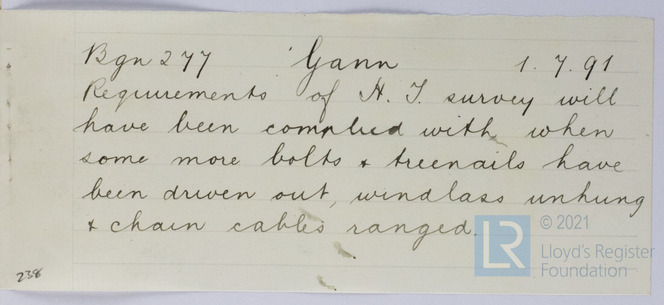 Bgn 277 Gann 1.7.91
Requirements of H. T. survey will
have been complied with when
some more bolts & treenails have
been driven out, windlass unhung
& chain cables ranged.
LR © 2021
Lloyd's Register
Foundation
238